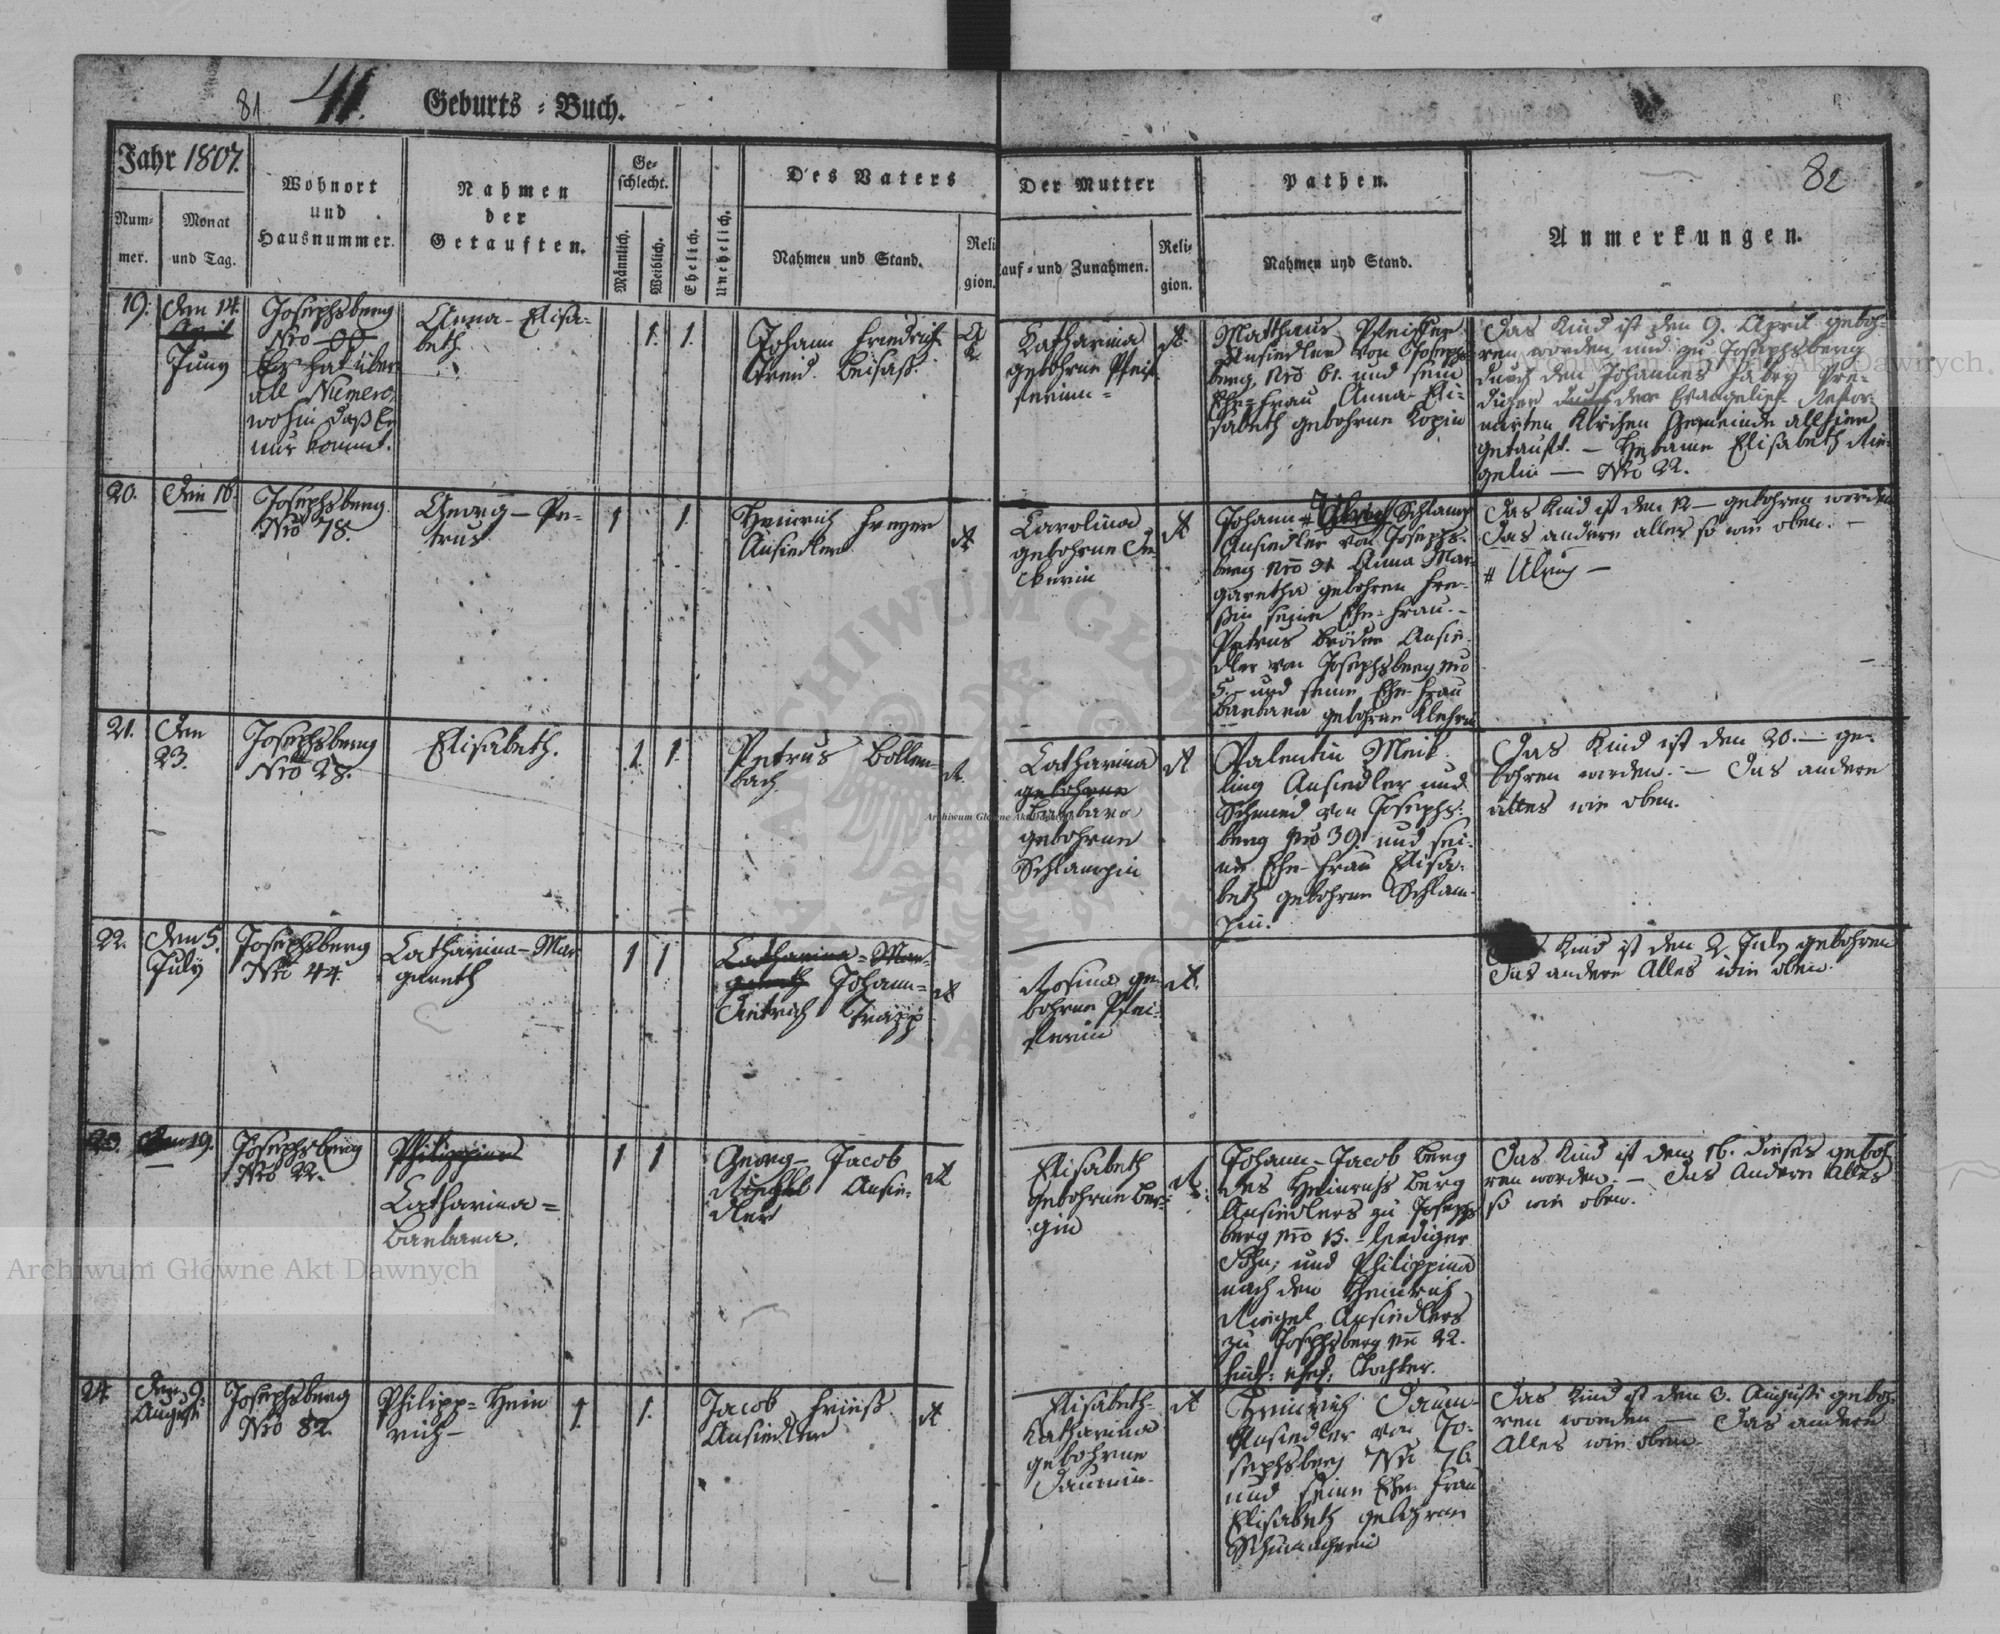 81 41. Geburts = Buch.
82
Jahr 1807.
Num-
mer.
Monat
und Tag.
Wohnort
und
Hausnummer.
Nahmen
der
Getauften.
Ge-
schlecht.
Männlich.
Weiblich.
Ehelich.
Unehelich.
Des Vaters
Nahmen und Stand.
Reli
gion.
Der Mutter
auf- und Zunahmen.
Reli-
gion.
Pathen.
Nahmen und Stand.
Anmerkungen.
19.
Den 14.
Juny
Josephsberg
Nro
Er hat über
all Numero,
wohin daß Er
nur kommt.
Anna - Elisa-
beth
1. 1.
Johann Friedrich
Beisaß.
Katharina
gebohrne Pfeif-
ferin -
R.
Matthäus Pfeiffer
Ansiedler von Josephs-
berg, Nro 61. und sein
Ehe-Frau Anna Eli-
sabeth gebohrne Kopin
Das Kind ist den 9. April geboh-
ren worden und zu Josephsberg
durch den Johannes Fabry Pre-
diger der Evangelisch Refor-
mirten Kirchen Gemeinde allhier
getauft. - Hebame Elisabeth Rie-
gelin - Nro 22.
20.
Den 16.
Josephsberg
Nro 78.
Georg - Pe-
trus
1 1.
Heinrich Freyer
Ansiedler
R
Carolina
gebohrne De-
ckerin
R
Johann # Schlamp
Ansiedler von Josephs-
berg Nro 31 Anna Mar-
garetha gebohren
seine Ehe-Frau. -
Petrus Bröder Ansie-
dler von Josephsberg nro
5. - und seine Ehe-Frau
Barbara gebohrne
Das Kind ist den 12 - gebohren worden
das andere alles so wie oben. -
# Ulrich -
21.
Den
23.
Josephsberg
Nro 28.
Elisabeth.
1 1.
Petrus Bollen-
bach
R.
Catharina
gebohrne
Barbara
gebohrne
Schlampin
R
Valentin Meit
ling Ansiedler und
Schmied von Josephs-
berg Nro 39. und sei-
ne Ehe-Frau Elisa-
beth gebohrne Schlam-
pin.
Das Kind ist den 20. - ge-
bohren worden. - Das andere
alles wie oben.
22.
Den 5.
July
Josephsberg
Nro 44
Catharina - Mar
gareth
1 1
Catharina - Mar-
gareth Johann -
Dietrich Trapp
R
Rosina ge-
bohrne Pfei-
fferin
R.
Kind ist den 2 July gebohren
Das andere Alles wie oben.
23.
Den 19.
Josephsberg
Nro 22.
Philippina
Catharina =
Barbara.
1 1
Georg - Jacob
Riegel Ansie-
dler
R
Elisabeth
gebohrne Ber-
gin
R.
Johann - Jacob Berg
des Heinrichs Berg
Ansiedlers zu Joseph
berg nro 13. - lediger
Sohn; und Philippina
nach den Heinrich
Riegel Ansiedlers
zu Josephsberg nro 22.
Tochter.
Das Kind ist den 16. dieses geboh
ren worden. - Das Andere Alles
so wie oben.
24.
Den 9.
August
Josephsberg
Nro 82.
Philipp = Hein
rich -
1. 1.
Jacob
Ansiedler
R.
Elisabeth -
Katharina
gebohrne
Daumin.
R
Heinrich Daum-
Ansiedler von Jo-
sephsberg Nro 76.
und seine Ehe Frau
Elisabeth gebohrne
Das Kind ist den 3. August geboh-
ren worden - Das andere
Alles wie oben
Archiwum Główne Akt Dawnych
Archiwum Główne Akt Dawnych